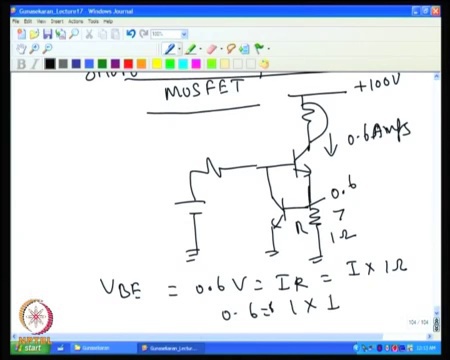 Gunasekaran_Lecture17 - Windows Journal
File Edit View Insert Actions Tools Help
100%
B I
MOSFET
+100V
0.6 Amps
0.6
R
1Ω
VBE = 0.6V = IR = I × 1Ω
0.6 = 1 × I
104 / 104
NPTEL
start
Gunasekaran
Gunasekaran_Lectur...